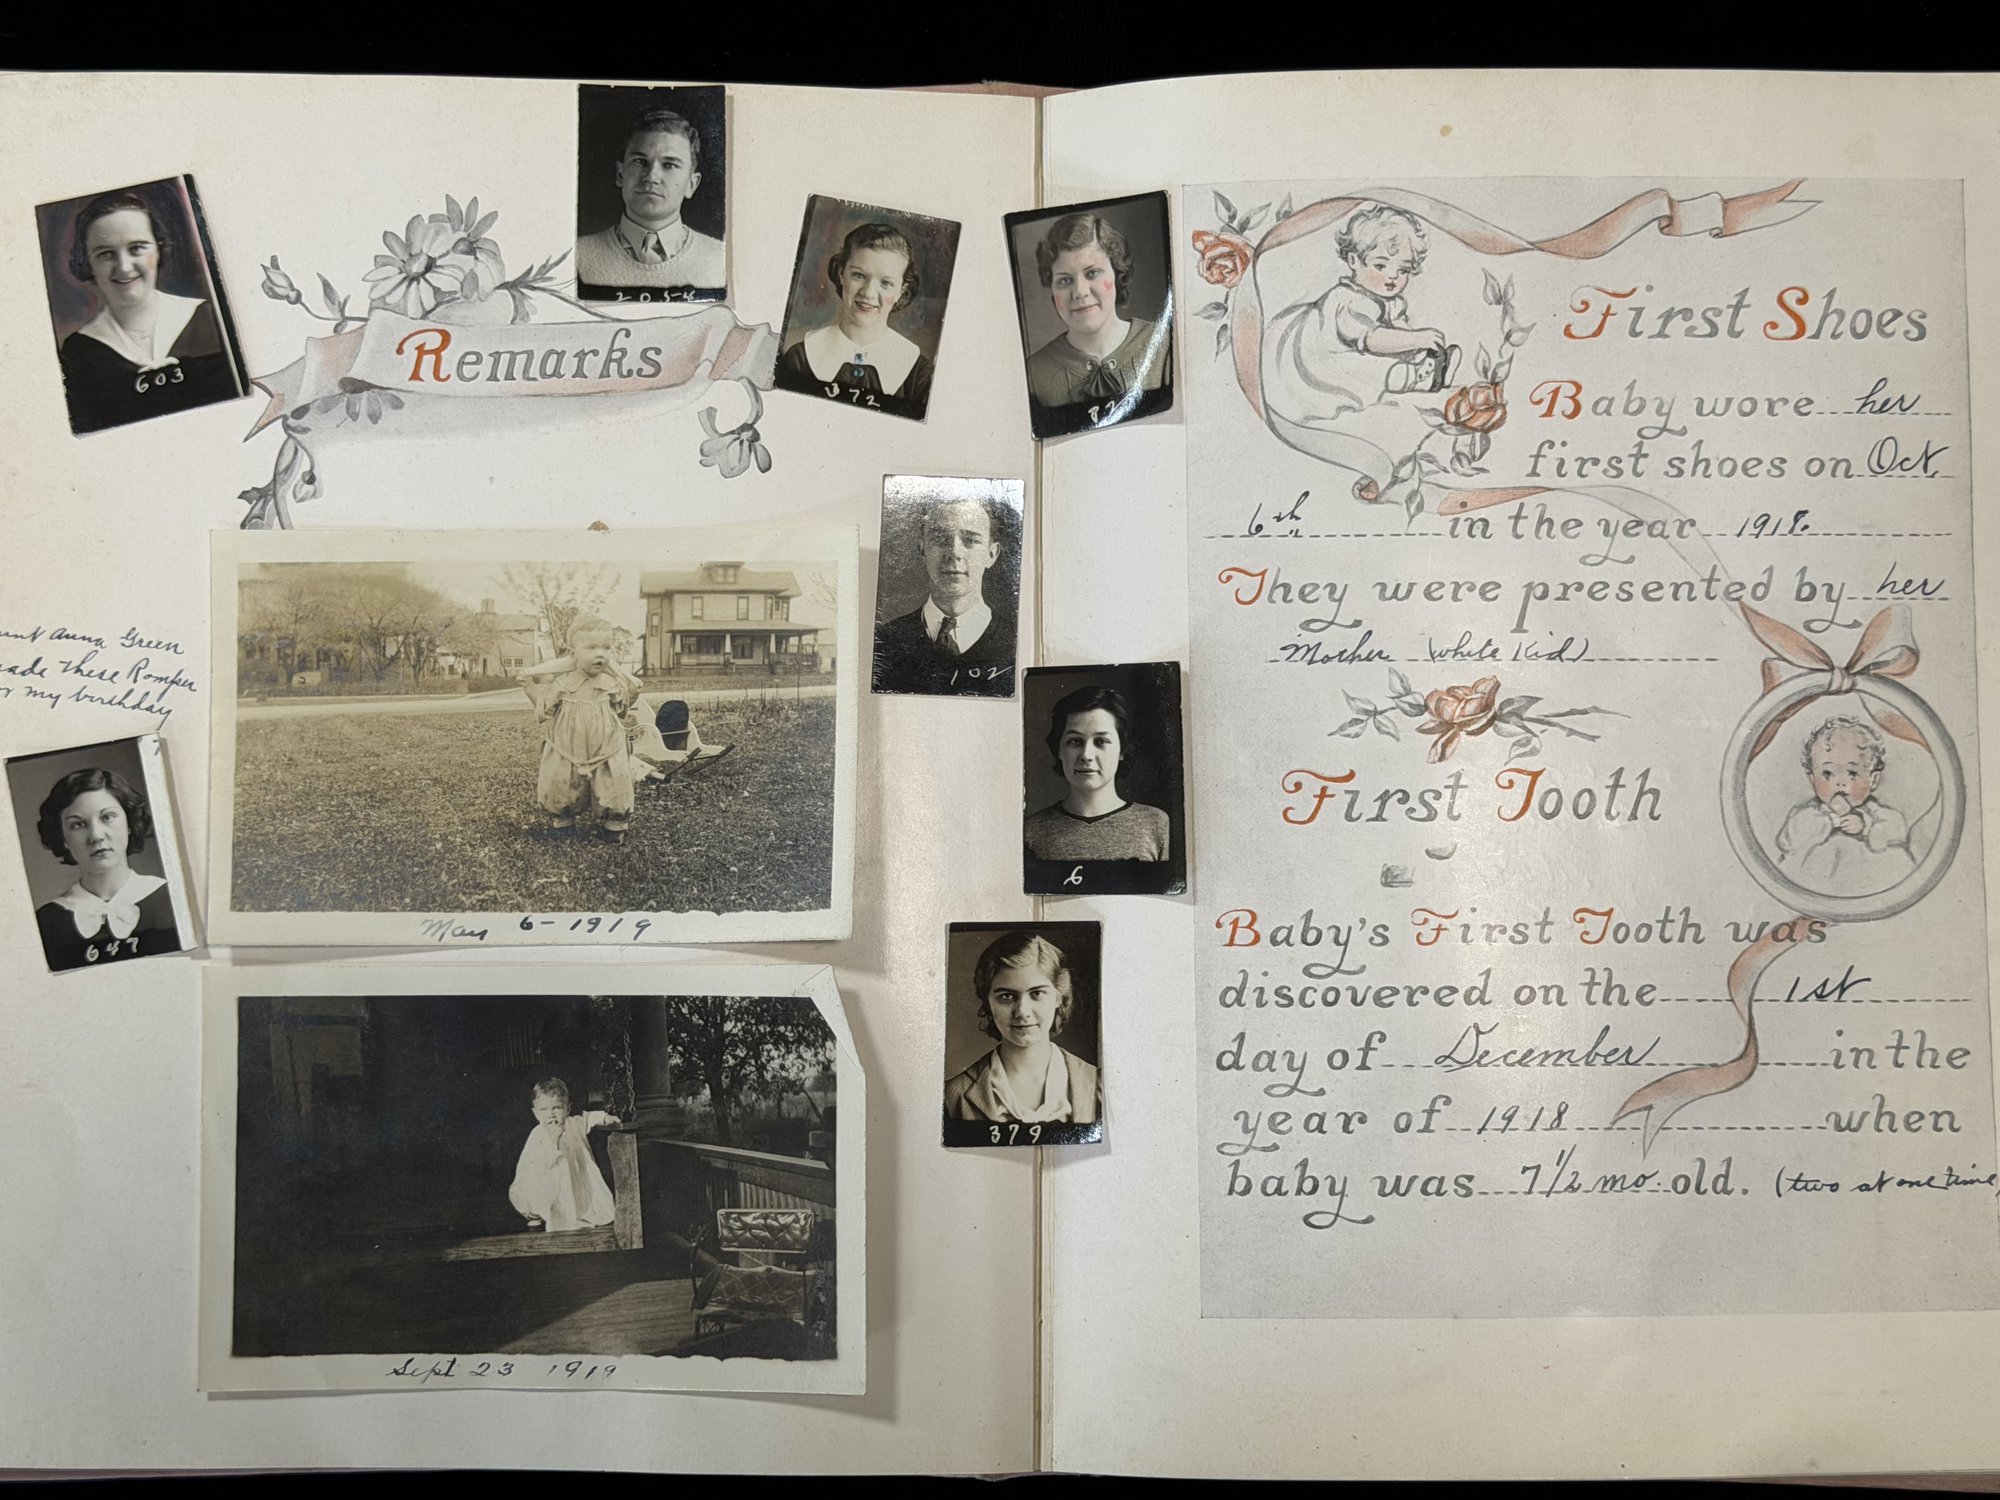 2054
603
372
Remarks
102
Anna Green
these Romper
my birthday
6
647
May 6-1919
379
Sept 23 1919
First Shoes
Baby wore her
first shoes on Oct.
6th in the year 1918.
They were presented by her
Mother (white Kid)
First Tooth
Baby's First Tooth was
discovered on the 1st
day of December in the
year of 1918 when
baby was 7 1/2 mo. old. (two at one time)